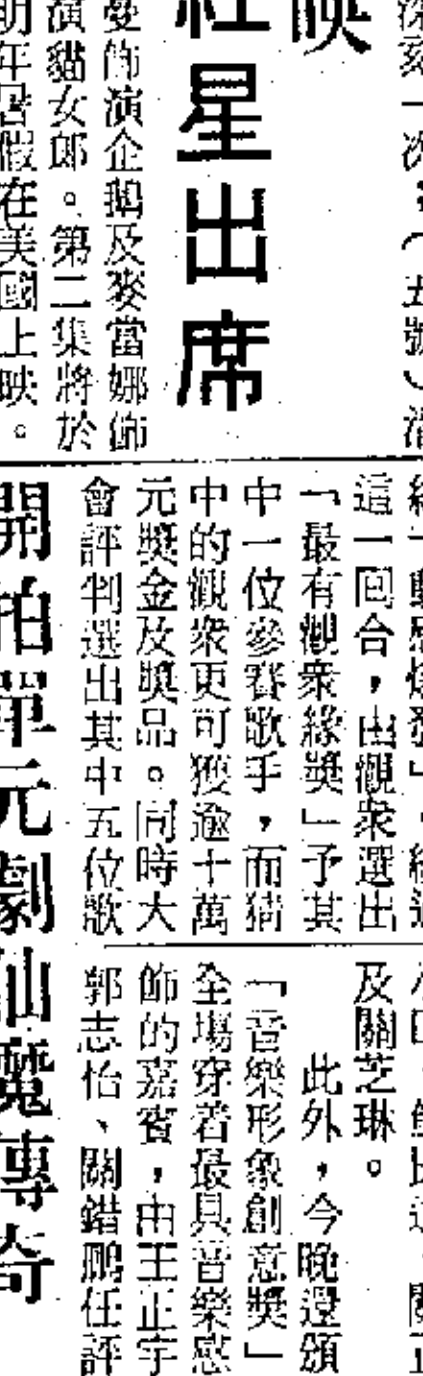 深刻一次
映
紅星出席
曼飾演企鵝及麥當娜飾
演貓女郎。第二集將於
明年暑假在美國上映。
這一回合，由觀衆選出
「最有觀衆緣獎」予其
中一位參賽歌手，而猜
中的觀衆更可獲逾十萬
元獎金及獎品。同時大
會評判選出其中五位歌
及關芝琳。
此外，今晚還頒
「音樂形象創意獎」
全場穿着最具音樂感
飾的嘉賓，由王正宇
郭志怡、關錯鵬任評
開拍單元劇仙魔傳奇